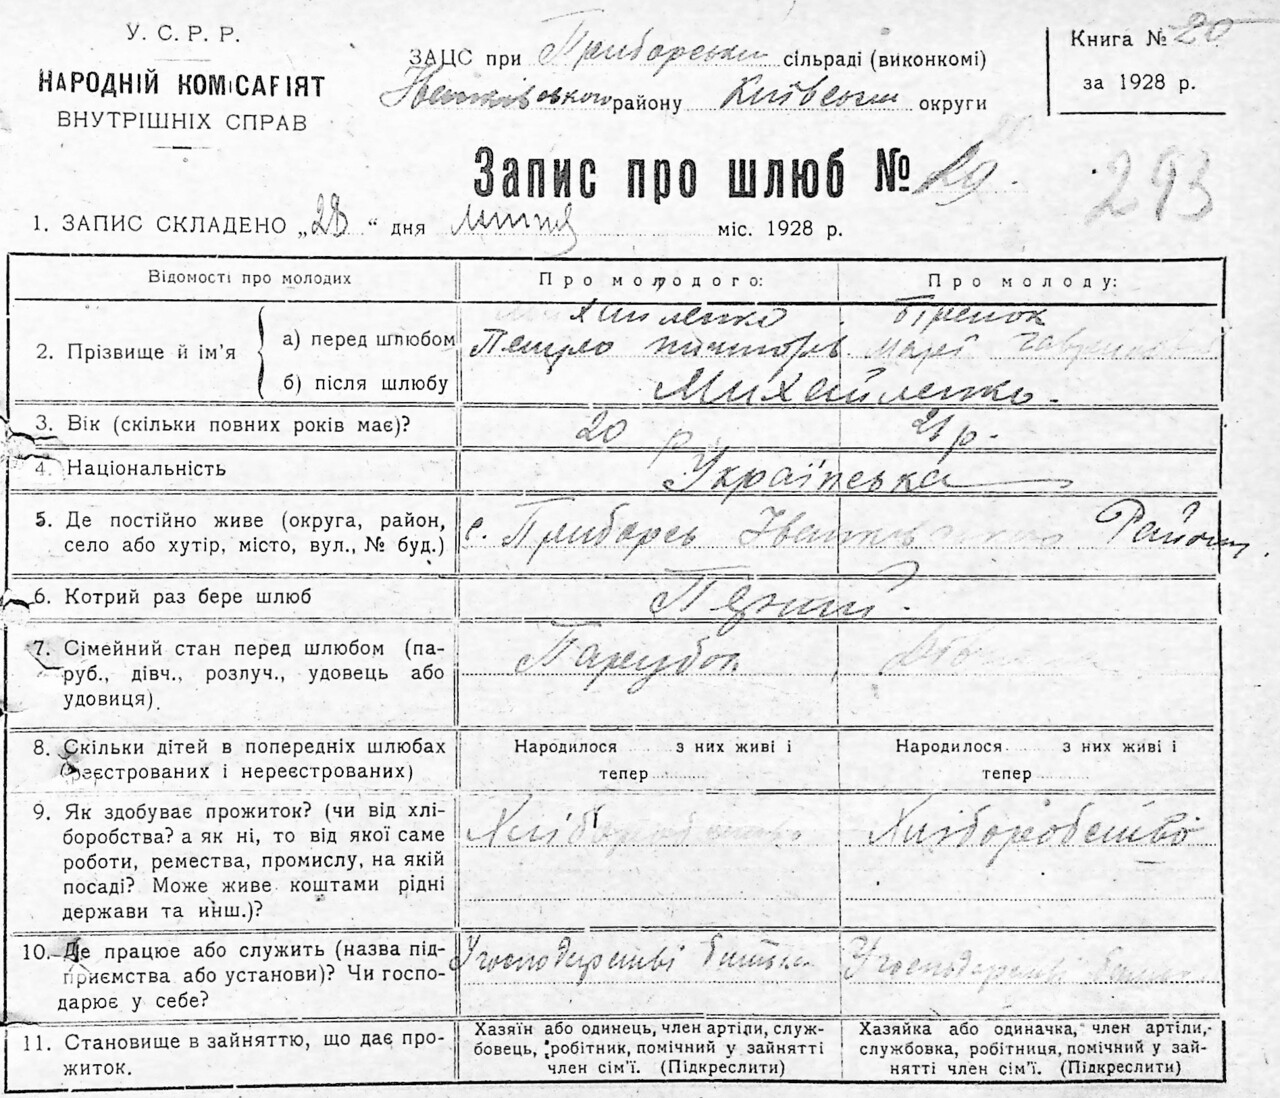 У. С. Р. Р.
НАРОДНІЙ КОМІСАРІЯТ
ВНУТРІШНІХ СПРАВ
ЗАЦС при Приборській сільраді (виконкомі)
Іванківського району Київської округи
Книга № 20
за 1928 р.
Запис про шлюб № 29.
293
1. ЗАПИС СКЛАДЕНО „28“ дня липня міс. 1928 р.
Відомості про молодих
Про молодого:
Про молоду:
2. Прізвище й ім'я
а) перед шлюбом
Петро
б) після шлюбу
Михайленко.
3. Вік (скільки повних років має)?
20 р.
21 р.
4. Національність
Українська
5. Де постійно живе (округа, район,
село або хутір, місто, вул., № буд.)
с. Приборськ Іванківського Району.
6. Котрий раз бере шлюб
Перший.
7. Сімейний стан перед шлюбом (па-
руб., дівч., розлуч., удовець або
удовиця).
Парубок
8. Скільки дітей в попередніх шлюбах
(реєстрованих і нереєстрованих)
Народилося з них живі і
тепер
Народилося з них живі і
тепер
9. Як здобуває прожиток? (чи від хлі-
боробства? а як ні, то від якої саме
роботи, ремества, промислу, на якій
посаді? Може живе коштами рідні
держави та инш.)?
Хліборобство
Хліборобство
10. Де працює або служить (назва під-
приємства або установи)? Чи госпо-
дарює у себе?
У господарстві батька
У господарстві
11. Становище в зайняттю, що дає про-
житок.
Хазяїн або одинець, член артіли, служ-
бовець, робітник, помічний у зайнятті
член сім'ї. (Підкреслити)
Хазяйка або одиначка, член артіли,
службовка, робітниця, помічний у зай-
нятті член сім'ї. (Підкреслити)